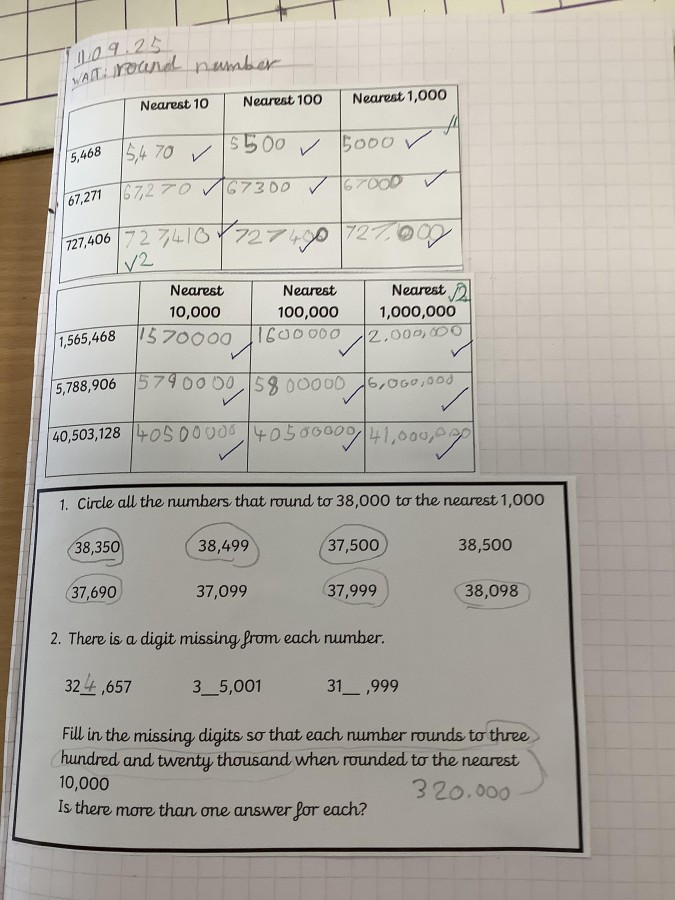 11.09.25
WALT: round number
Nearest 10 Nearest 100 Nearest 1,000
5,468 5,470 ✓ 5500 ✓ 5000 ✓
67,271 67,270 ✓ 67300 ✓ 67000 ✓
727,406 727,410 ✓ 727400 ✓ 727.000 ✓
√2
Nearest 10,000 Nearest 100,000 Nearest 1,000,000 √2
1,565,468 1570000 ✓ 1600000 ✓ 2.000,000 ✓
5,788,906 5790000 ✓ 5800000 ✓ 6,000,000 ✓
40,503,128 40500000 ✓ 40500000 ✓ 41,000,000 ✓
1. Circle all the numbers that round to 38,000 to the nearest 1,000
38,350 38,499 37,500 38,500
37,690 37,099 37,999 38,098
2. There is a digit missing from each number.
324,657 3_5,001 31_ ,999
Fill in the missing digits so that each number rounds to three
hundred and twenty thousand when rounded to the nearest
10,000 320.000
Is there more than one answer for each?